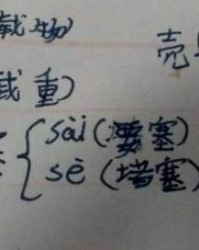 载物)
壳
载重)
{ sài (要塞)
sè (堵塞)